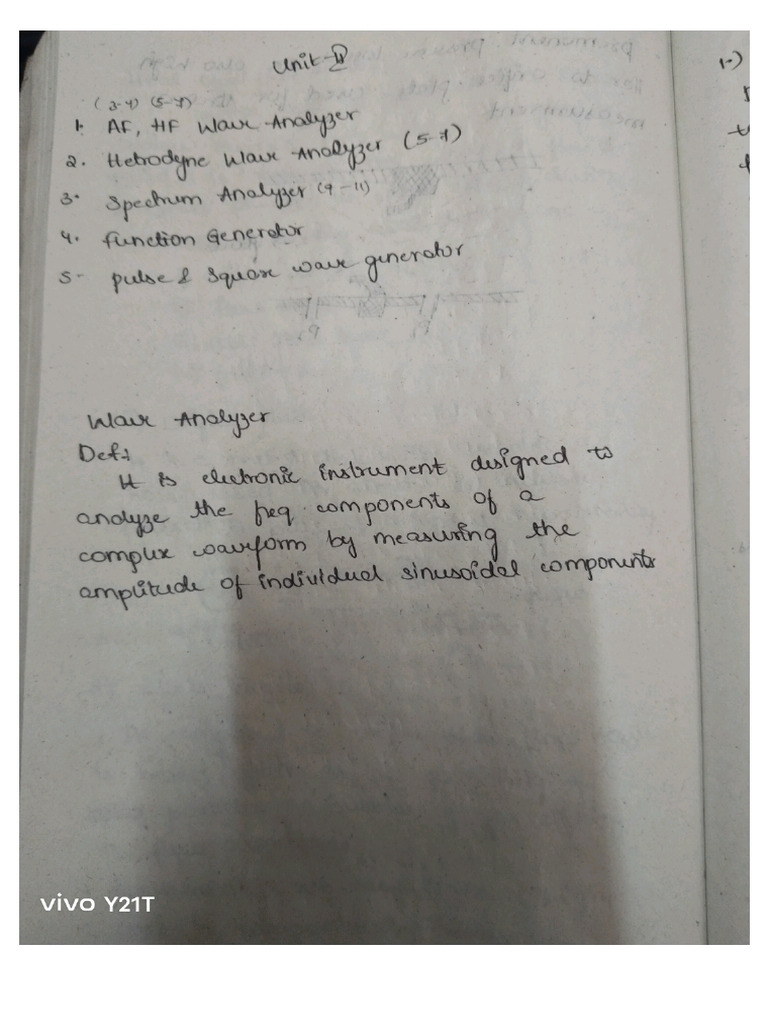 Unit-II
(3-4) (5-7)
1. AF, HF Wave Analyzer
2. Hetrodyne Wave Analyzer (5-7)
3. Spectrum Analyzer (9-11)
4. Function Generator
5- pulse & Square wave generator
Wave Analyzer
Def:
It is electronic instrument designed to
analyze the freq. components of a
complex waveform by measuring the
amplitude of individual sinusoidal components
1-)
vivo Y21T